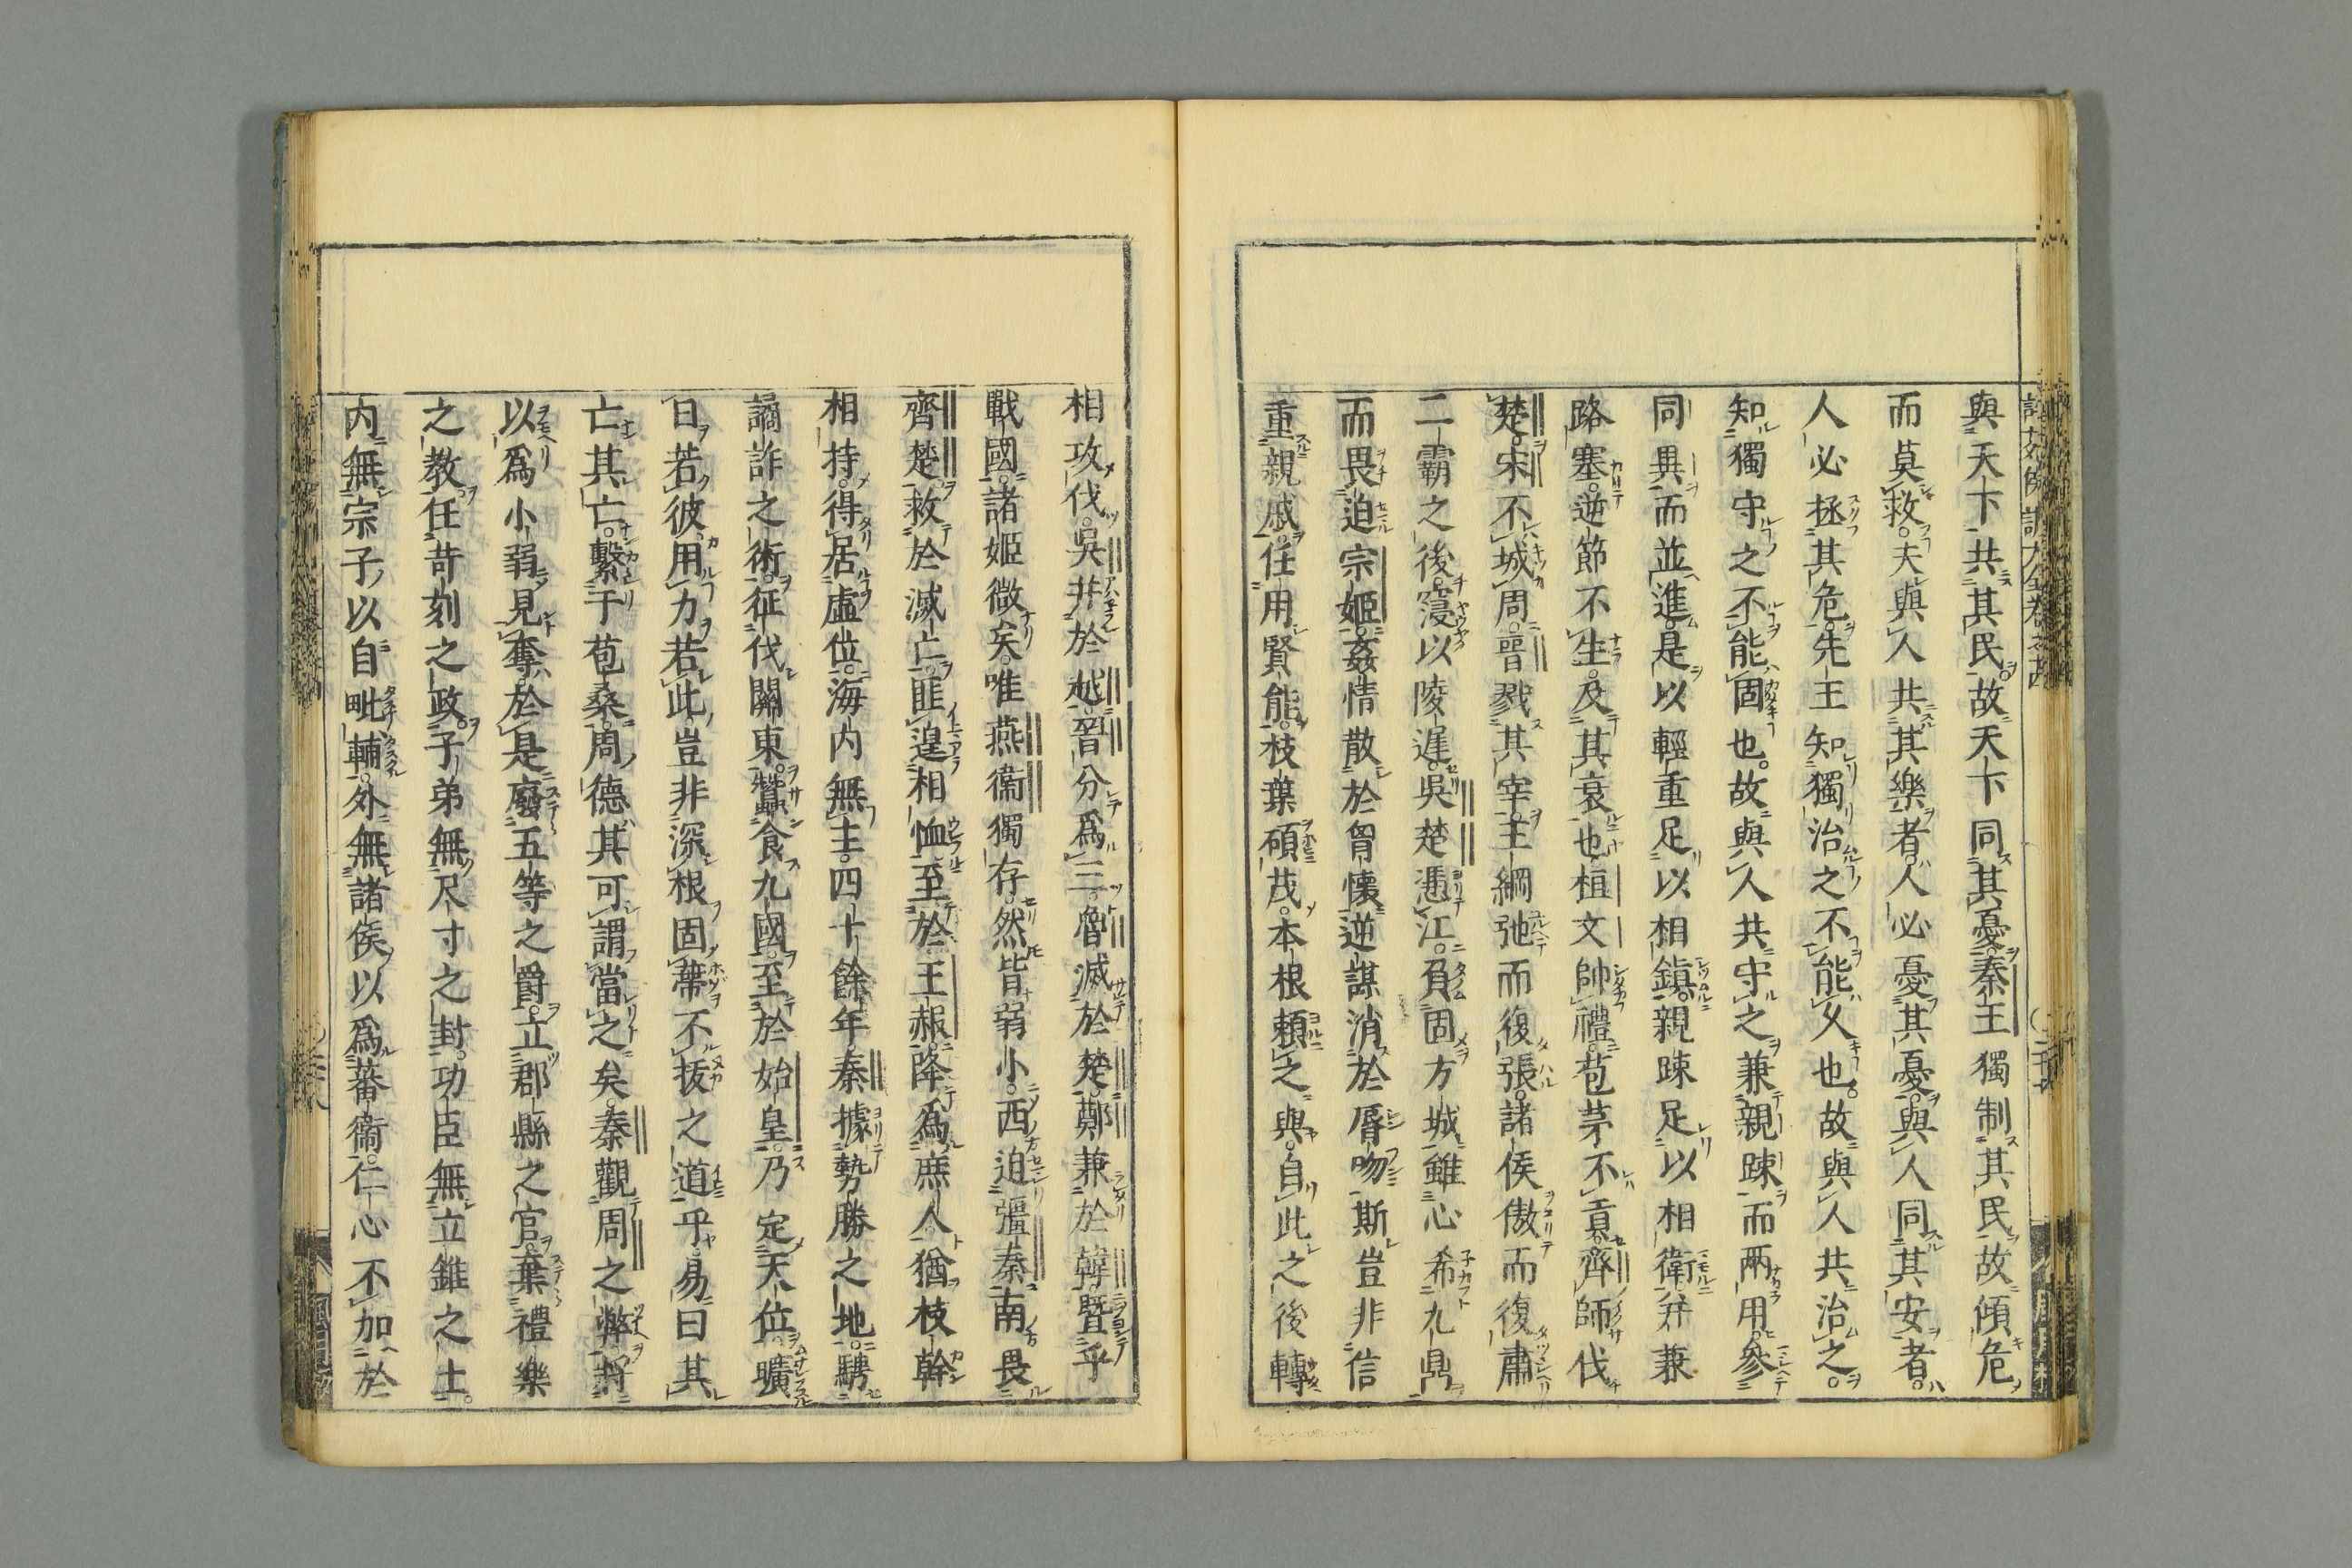 與天下共其民故天下同其憂秦王獨制其民故傾危
而莫救。夫與人共其樂者。人必憂其憂。與人同其安者。
人必拯其危。先王知獨治之不能久也。故與人共治之。
知獨守之不能固也。故與人共守之兼親踈而兩用。參
同異而並進。是以輕重足以相鎮。親踈足以相衛并兼
路塞。逆節不生。及其衰也。桓文帥禮。苞茅不貢。齊師伐
楚。宋不城周。晉戮其宰。王綱弛而復張。諸侯傲而復肅
二霸之後。寖以陵遲。吳楚憑江。負固方城雖心希九鼎
而畏迫宗姬。姦情散於胷懷逆謀消於脣吻斯豈非信
重親戚任用賢能。枝葉碩茂。本根頼之與。自此之後轉
相攻伐。吳并於越。晉分爲三。魯滅於楚。鄭兼於韓。曁乎
戰國。諸姬微矣。唯燕衞獨存。然皆弱小。西迫彊秦。南畏
齊楚。救於滅亡。匪遑相恤。至於王赧。降爲庶人。猶枝幹
相持。得居虚位。海内無主。四十餘年。秦據勢勝之地。騁
譎詐之術。征伐關東。蠶食九國。至於始皇。乃定天位。曠
日若彼。用力若此。豈非深根固蔕不拔之道乎。易曰其
亡其亡。繫于苞桑。周德其可謂當之矣。秦觀周之弊。將
以爲小弱見奪。於是廢五等之爵。立郡縣之官。棄禮樂
之教。任苛刻之政。子弟無尺寸之封。功臣無立錐之土。
内無宗子以自毗輔。外無諸侯以爲蕃衞。仁心不加於